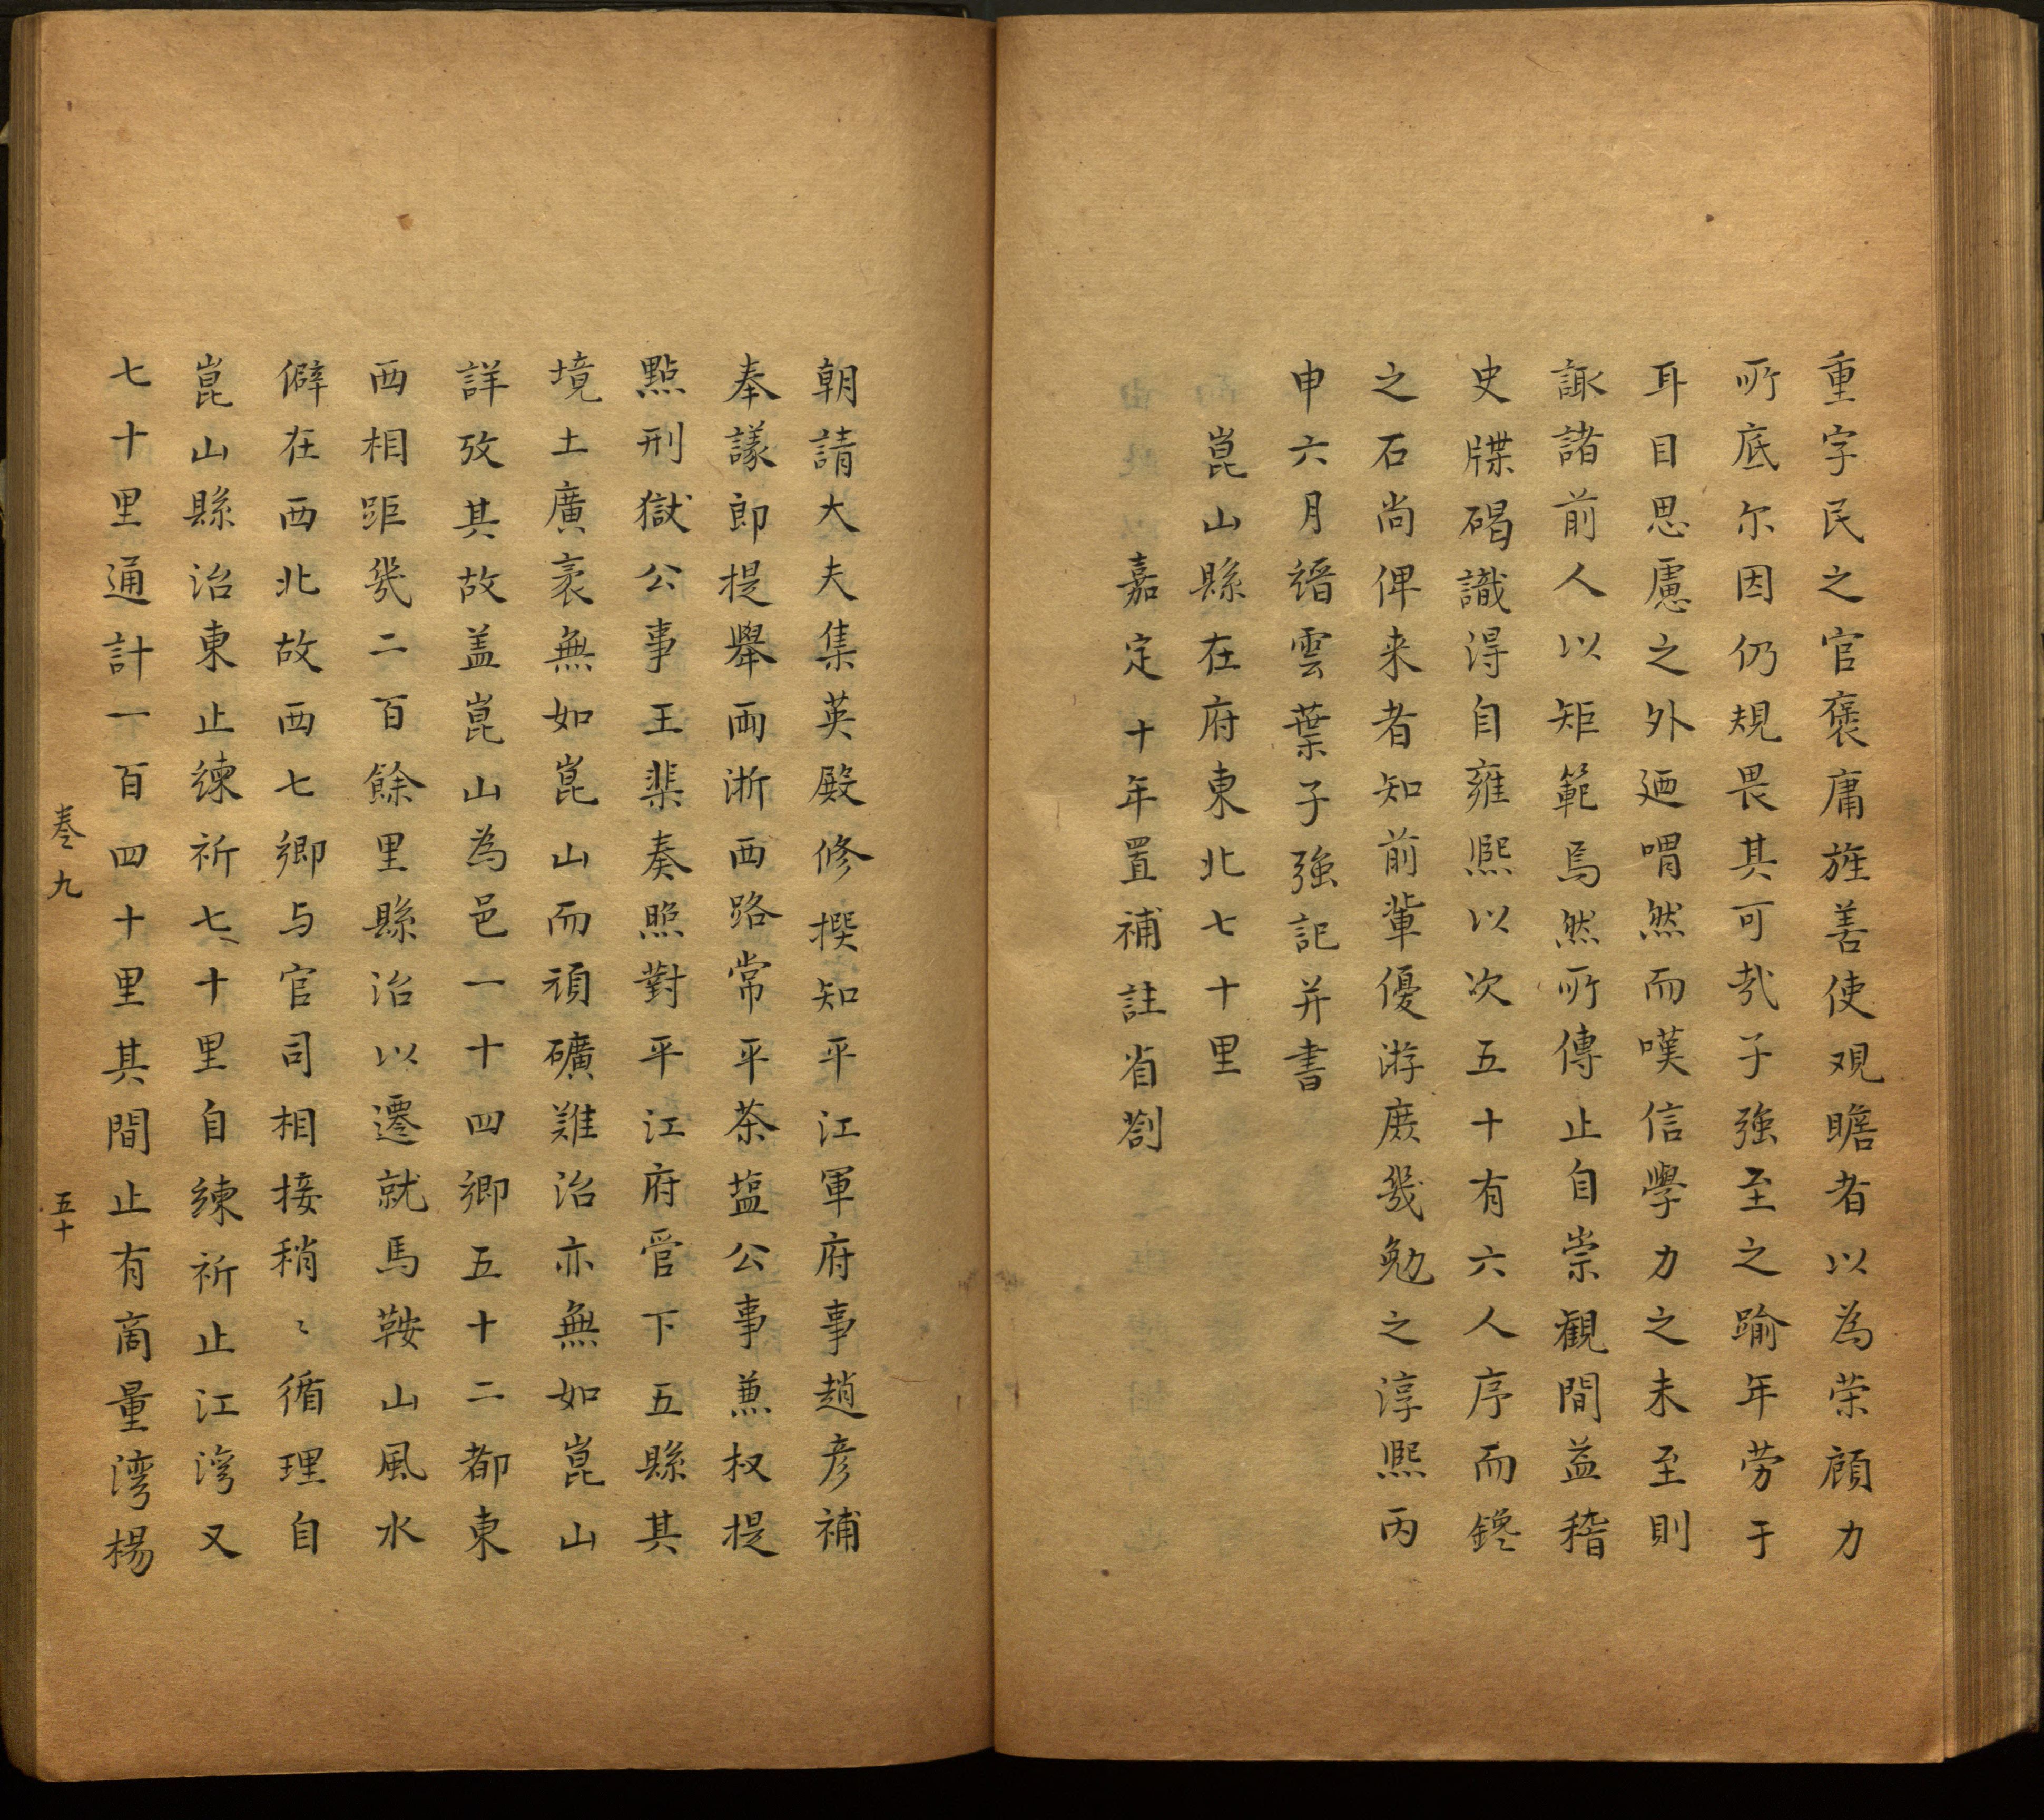 重字民之官褒庸旌善使观瞻者以為荣顧力
所底尔因仍規畏其可㢤子強至之踰年劳于
耳目思慮之外廼喟然而嘆信學力之未至則
諏諸前人以矩範焉然所傳止自崇観間益稽
史牒碣識得自雍熙以次五十有六人序而鑱
之石尚俾来者知前軰優游庻幾勉之淳熙丙
申六月縉雲葉子強記并書
崑山縣在府東北七十里
嘉定十年置補註省劄
朝請大夫集英殿修撰知平江軍府事趙彦補
奉議郎提舉両浙西路常平茶塩公事兼权提
㸃刑獄公事王棐奏照對平江府管下五縣其
境土廣袤無如崑山而頑礦難治亦無如崑山
詳攷其故盖崑山為邑一十四鄉五十二都東
西相距幾二百餘里縣治以遷就馬鞍山風水
僻在西北故西七鄉与官司相接稍〻循理自
崑山縣治東止練祈七十里自練祈止江湾又
七十里通計一百四十里其間止有商量湾楊
卷九
五十